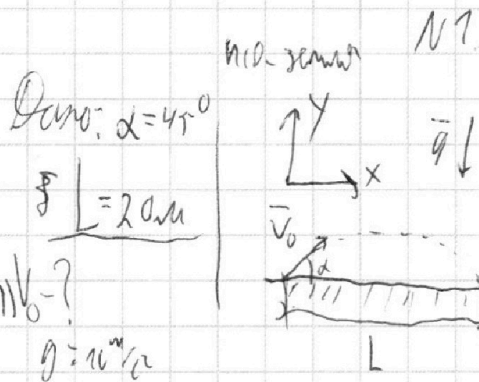 N1.
ИСО-земля
Дано: α=45°
L=20м
V₀-?
g=10 м/с²
Y
X
g
V₀
α
L